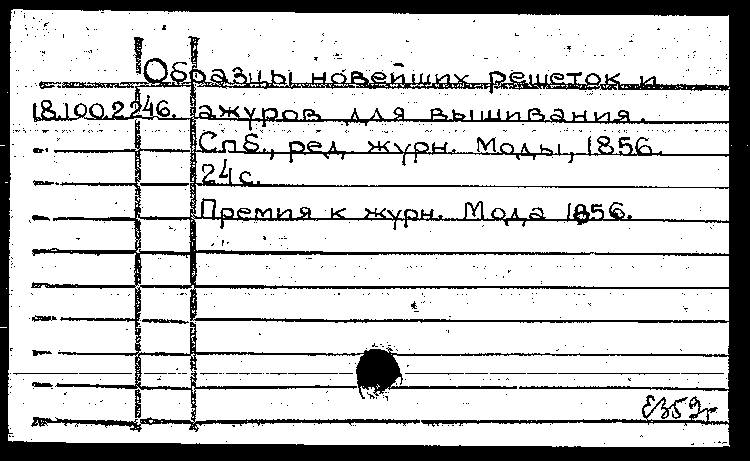 Образцы новейших решеток и
18.100.2246. ажуров для вышивания.
Спб., ред. журн. Моды, 1856.
24 с.
Премия к журн. Мода 1856.